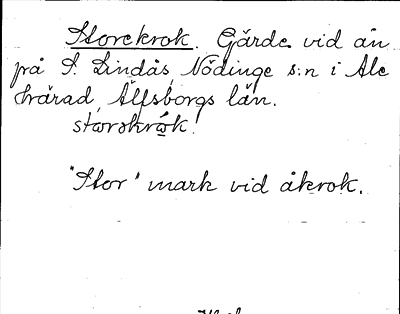 Storekrok. Gärde vid ån
på S. Lindås, Nödinge s:n i Ale
härad, Älfsborgs län.
storskråk!
"Stor" mark vid åkrok.